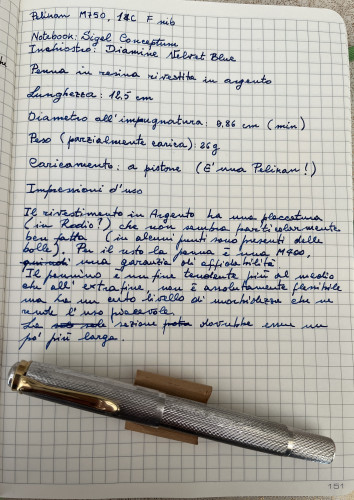 Pelikan M750, 18C F nib
Notebook: Sigel Conceptum
Inchiostro: Diamine Velvet Blue
Penna in resina rivestita in argento
Lunghezza: 12,5 cm
Diametro all'impugnatura: 0,86 cm (min)
Peso (parzialmente carica): 26g
Caricamento: a pistone (E' una Pelikan!)
Impressioni d'uso
Il rivestimento in Argento ha una placcatura
(in Rodio?) che non sembra particolarmente
ben fatta (in alcuni punti sono presenti delle
bolle). Per il resto la penna è una M400,
quindi una garanzia di affidabilità
Il pennino è un fine tendente più al medio
che all'extrafine, non è assolutamente flessibile
ma ha un certo livello di morbidezza che ne
rende l'uso piacevole.
La sezione dovrebbe essere un
po' più larga.
151